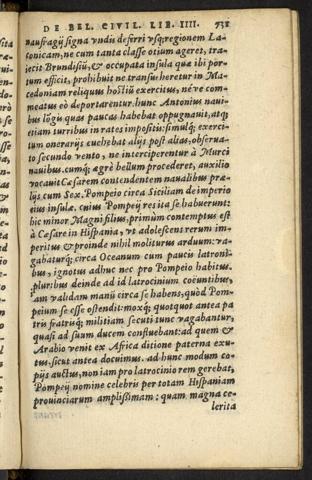 DE BEL. CIVIL. LIB. IIII. 731
naufragij signa vndis deferri vsq; regionem La-
conicam, ne cum tanta classe otium ageret, tra-
iecit Brundisiũ, & occupata insula quæ ibi por-
tum efficit, prohibuit ne transuheretur in Ma-
cedoniam reliquus hostiũ exercitus, néve com-
meatus eò deportarentur. hunc Antonius naui-
bus lõgis quas paucas habebat oppugnauit, atq;
etiam turribus in rates impositis: simulq; exerci-
tum onerarijs euehebat alijs post alias, obserua-
to secundo vento, ne interciperentur à Murci
nauibus. cumq; ægrè bellum procederet, auxilio
vocauit Cæsarem contendentem naualibus præ-
lijs cum Sex. Pompeio circa Siciliam de imperio
eius insulæ. cuius Pompeij res ita se habuerunt:
hic minor Magni filius, primùm contemptus est
à Cæsare in Hispania, vt adolescens rerum im-
peritus & proinde nihil moliturus arduum: va-
gabaturq; circa Oceanum cum paucis latroni-
bus, ignotus adhuc nec pro Pompeio habitus.
pluribus deinde ad id latrocinium coëuntibus,
am validam manũ circa se habens, quòd Pom-
peium se esse ostendit: moxq; quotquot antea pa
tris fratrisq; militiam secuti tunc vagabantur,
quasi ad suum ducem confluebant: ad quem &
Arabio venit ex Africa ditione paterna exu-
tus, sicut antea docuimus. ad hunc modum co-
pijs auctus, non iam pro latrocinio rem gerebat,
Pompeij nomine celebris per totam Hispaniam
prouinciarum amplissimam: quam magna ce-
lerita